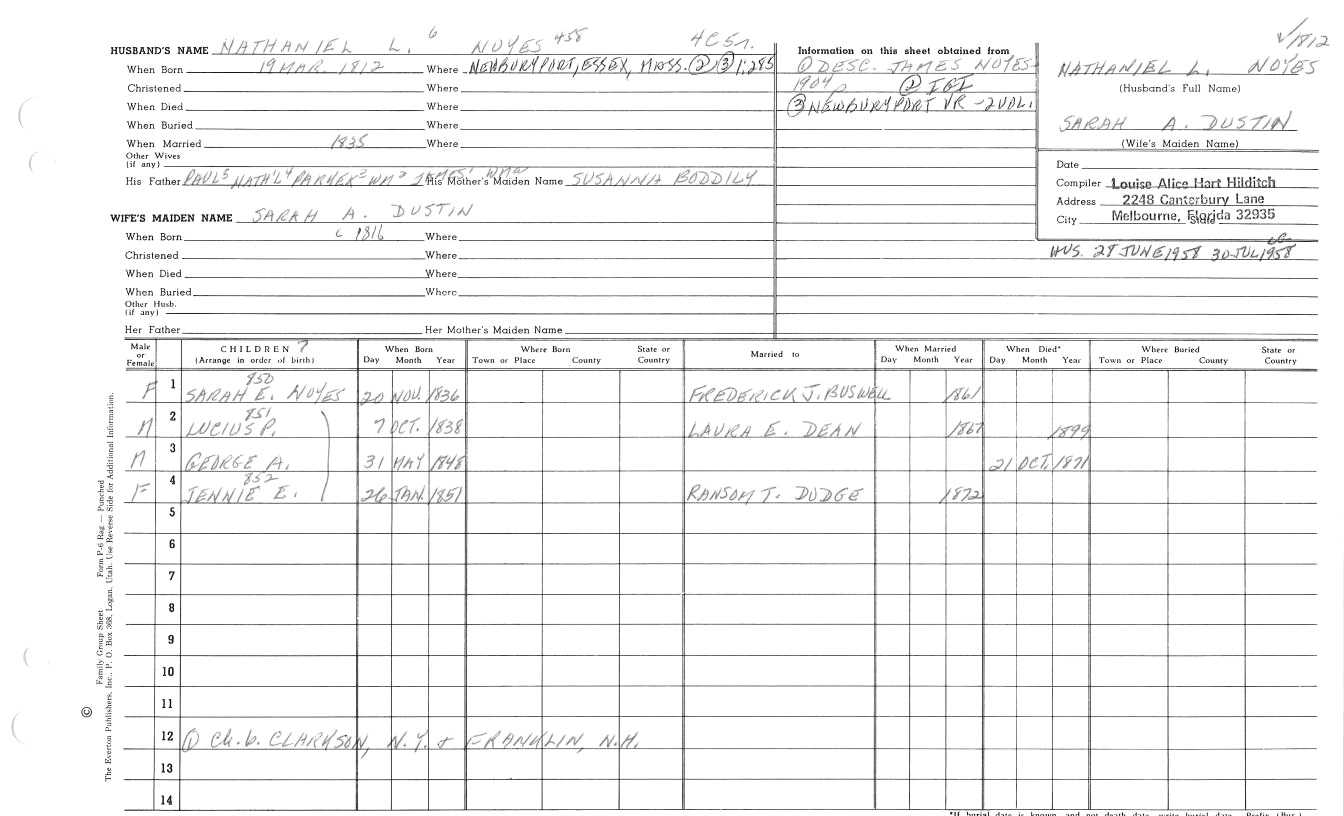 √1812
HUSBAND'S NAME NATHANIEL L. 6 NOYES 458 4C5r.
When Born 19 MAR. 1812 Where NEWBURYPORT, ESSEX, MASS. ② ③ 1:285
Christened Where
When Died Where
When Buried Where
When Married 1835 Where
Other Wives
(if any)
His Father PAUL5 NATH'L4 PARKER3 WM2 JAMES1 WMA His Mother's Maiden Name SUSANNA BODDILY
WIFE'S MAIDEN NAME SARAH A. DUSTIN
When Born c 1816 Where
Christened Where
When Died Where
When Buried Where
Other Husb.
(if any)
Her Father Her Mother's Maiden Name
Information on this sheet obtained from
① DESC. JAMES NOYES
1904 ② IGI
③ NEWBURYPORT VR - 2 VOL.
NATHANIEL L. NOYES
(Husband's Full Name)
SARAH A. DUSTIN
(Wife's Maiden Name)
Date
Compiler Louise Alice Hart Hilditch
Address 2248 Canterbury Lane
City Melbourne, Florida 32935 State
HUS. 28 JUNE 1958 30 JUL 1958
Male or Female CHILDREN 7 (Arrange in order of birth) When Born Day Month Year Where Born Town or Place County State or Country Married to When Married Day Month Year When Died* Day Month Year Where Buried Town or Place County State or Country
F 1 850 SARAH E. NOYES 20 NOV. 1836 FREDERICK J. BUSWELL 1861
M 2 851 LUCIUS P. 7 OCT. 1838 LAURA E. DEAN 1867 1899
M 3 GEORGE A. 31 MAY 1848 21 OCT. 1871
F 4 852 JENNIE E. 26 JAN. 1851 RANSOM T. DUDGE 1872
5
6
7
8
9
10
11
12 ① Ch. b. CLARKSON, N.Y. + FRANKLIN, N.H.
13
14
*If burial date is known, and not death date, write burial date. Prefix (Bur.)
© Family Group Sheet Form P-6 Rag — Punched
The Everton Publishers, Inc., P. O. Box 368, Logan, Utah. Use Reverse Side for Additional Information.